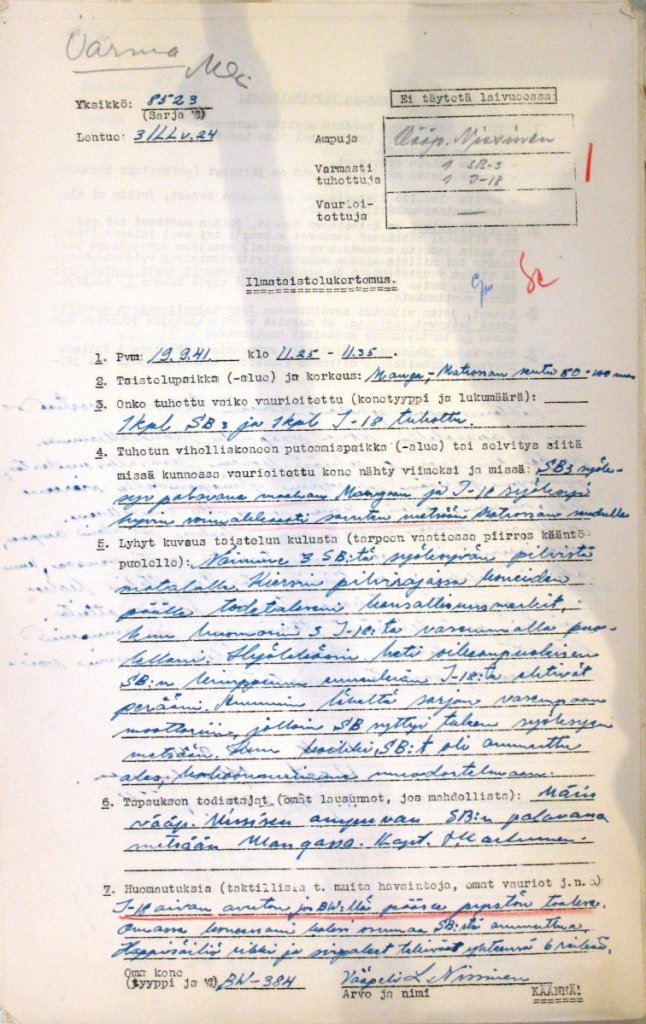 Varma
Yksikkö: 8523
(Sarja
Ei täytetä laivueessa
Lentue: 3/LLv.24
Ampuja Vääp. Nissinen
Varmasti 1 SB-3
tuhottuja 1 I-18
Vaurioi-
tettuja —
Ilmataistelukertomus.
1. Pvm: 19.9.41. klo 11.25 - 11.35.
2. Taistelupaikka (-alue) ja korkeus: Manga,-Matrosan seutu 80-100 m
3. Onko tuhottu vaiko vaurioitettu (konetyyppi ja lukumäärä):
1 kpl SB3 ja 1 kpl I-18 tuhottu.
4. Tuhotun viholliskoneen putoamispaikka (-alue) tai selvitys siitä
missä kunnossa vaurioitettu kone nähty viimeksi ja missä: SB3 syök-
syi palavana maahan Mangaan ja I-18 syöksyi
metsään Matrosan seudulla
5. Lyhyt kuvaus taistelun kulusta (tarpeen vaatiessa piirros kääntö-
puolelle): 3 SB:tä syöksyvän pilvistä
matalalle. pilvirajassa koneiden
päällä todetakseni kansallisuusmerkit,
kun huomasin 3 I-18:ta vasemmalla puo-
lellani. Hyökkäsin heti oikeanpuoleisen
SB:n kimppuun ennenkuin I-18:ta ehtivät
perääni. Ammuin läheltä sarjan vasempaan
moottoriin, jolloin SB syttyi tuleen syöksyen
metsään. Kun kaikki SB:t oli ammuttu
alas,
6. Tapauksen todistajat (omat lausunnot, jos mahdollista): Näin
vääp. Nissisen ampuvan SB:n palavana
metsään Mangassa. Kapt.
7. Huomautuksia (taktillisia t. muita havaintoja, omat vauriot j.n.e)
I-18 aivan avuton jos BW:llä pääsee pyrstön taakse.
Omassa koneessani kaksi osumaa SB:stä ammuttua.
Happisäiliö rikki ja sirpaleet tekivät yhteensä 6 reikää.
Oma kone
(tyyppi ja BW-384
Vääpeli L Nissinen
Arvo ja nimi
KÄÄNNÄ!